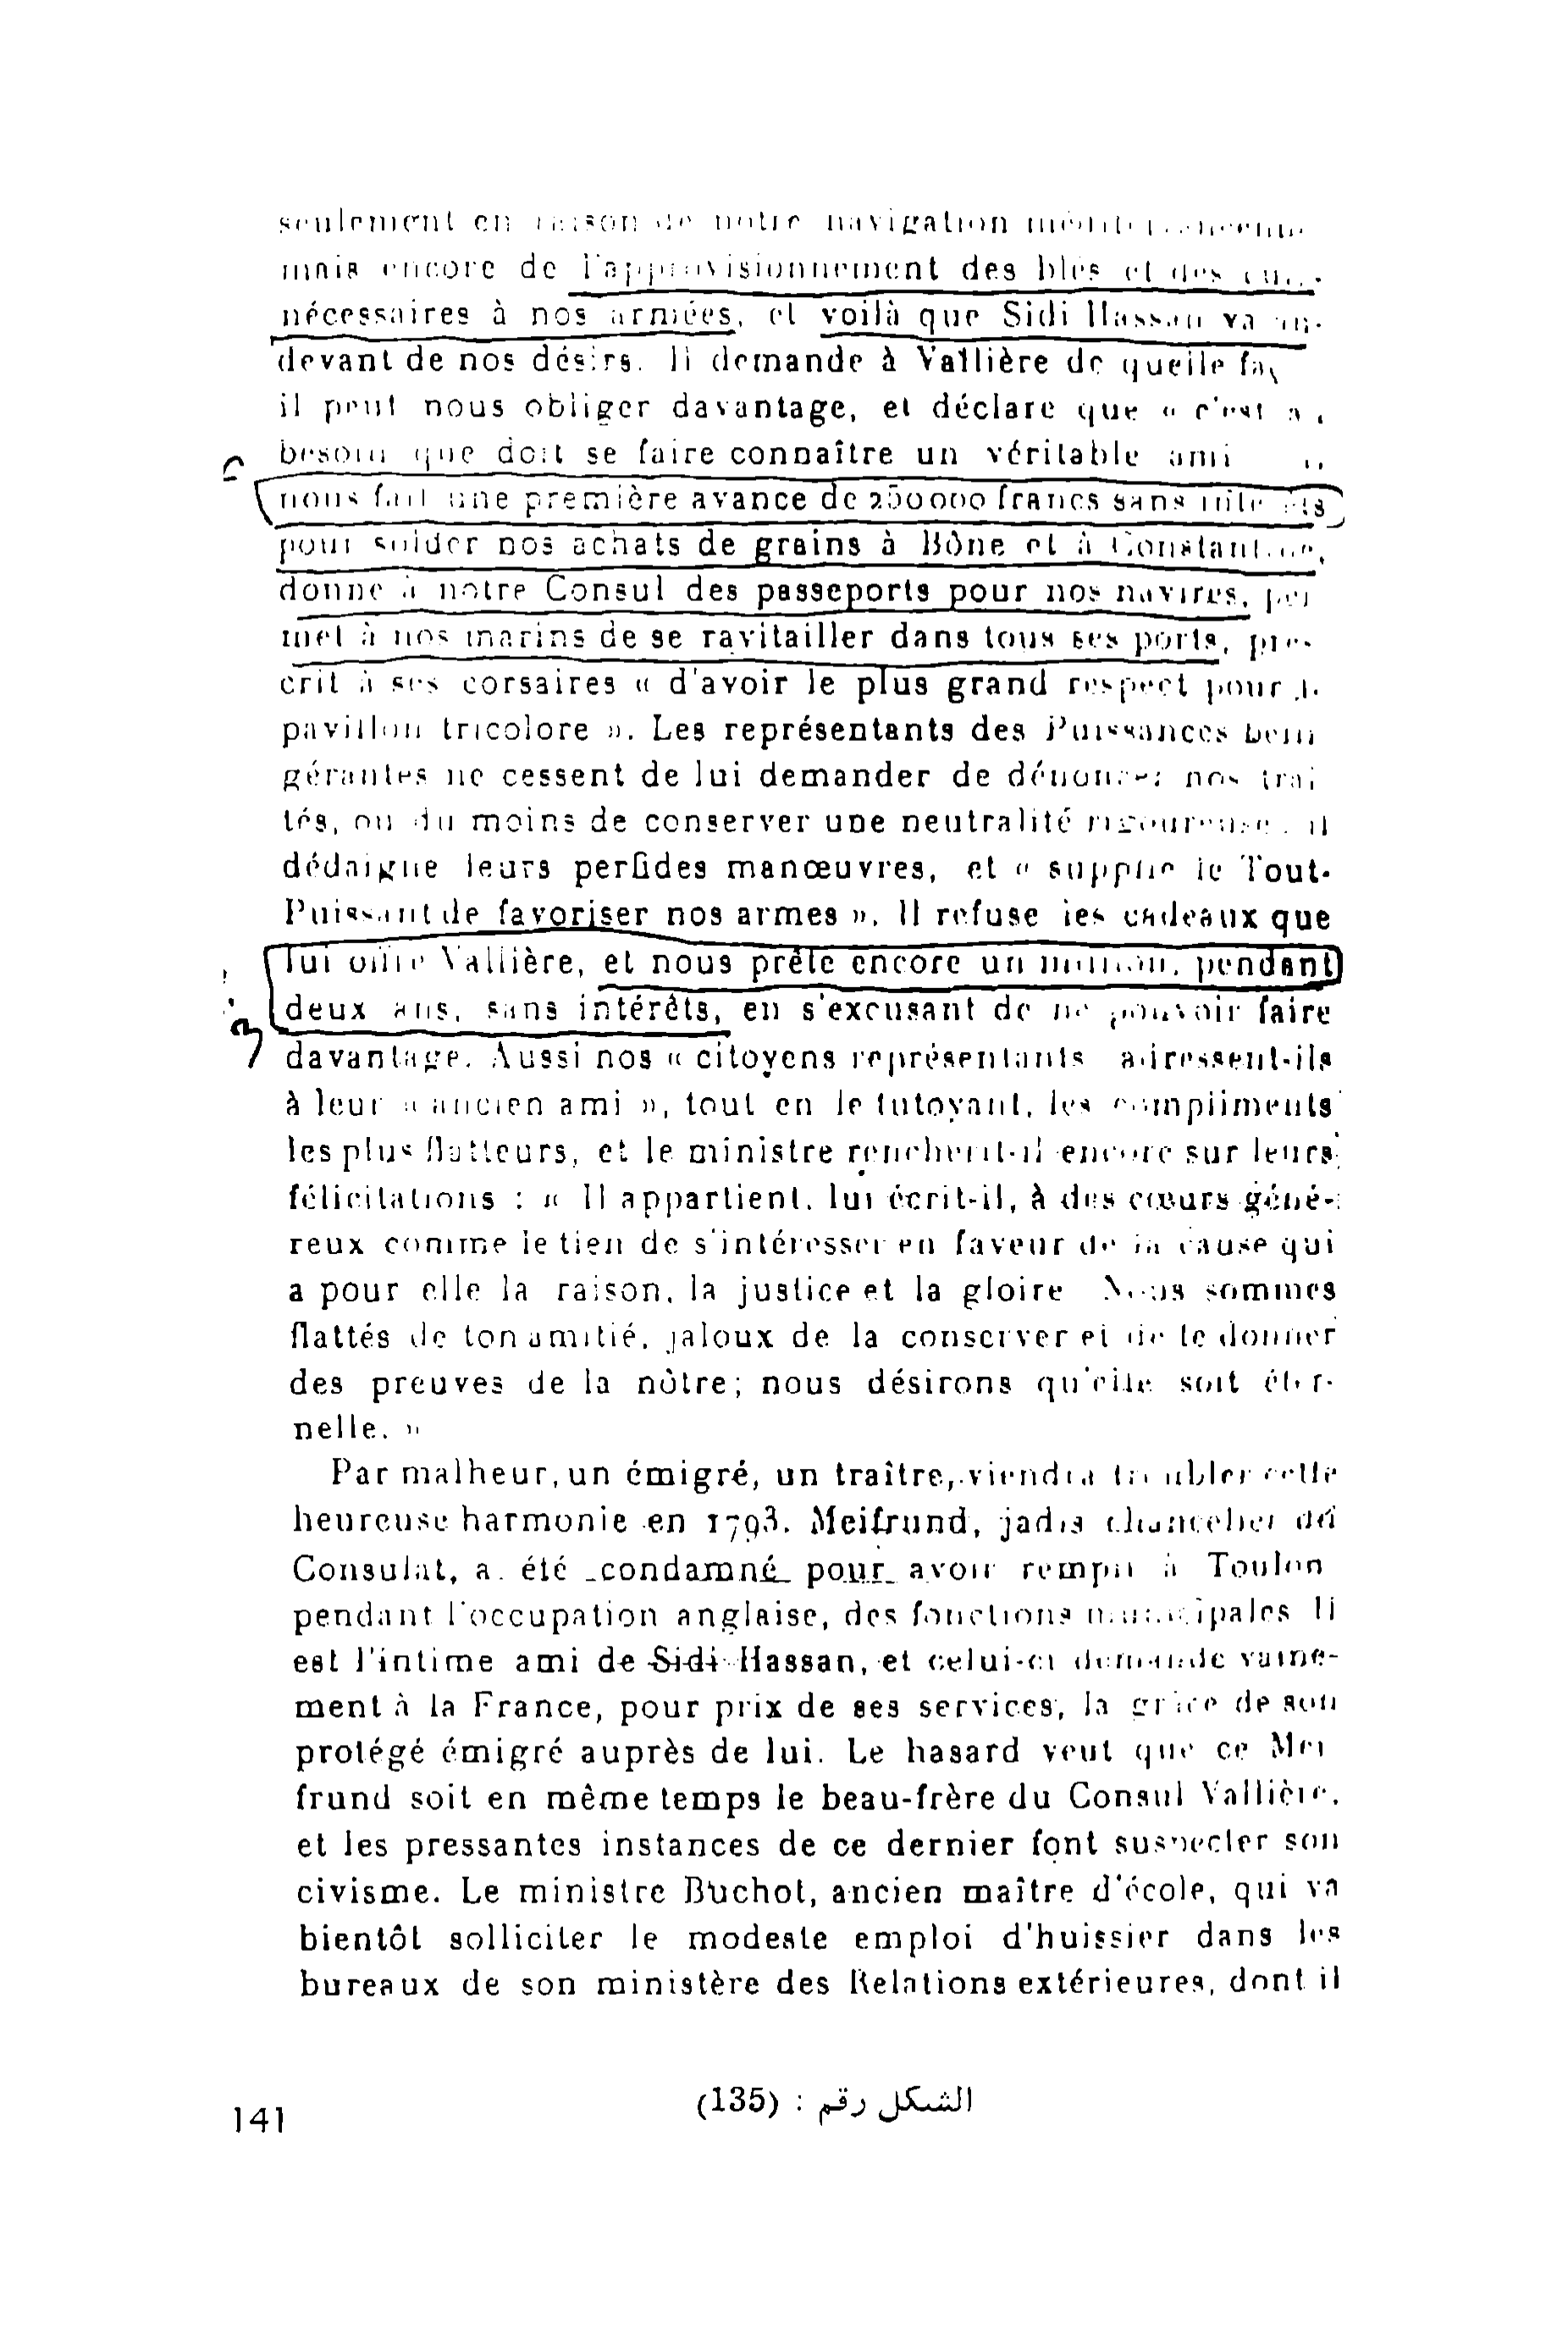 seulement en raison de notre navigation
mais encore de l'approvisionnement des blés et des
nécessaires à nos armées, et voilà que Sidi Hassan va au-
devant de nos désirs. Il demande à Vallière de quelle
il peut nous obliger davantage, et déclare que « c'est
besoin que doit se faire connaître un véritable ami
nous fait une première avance de 250 000 francs sans intérêts
pour solder nos achats de grains à Bône et à Constantine,
donne à notre Consul des passeports pour nos navires, per
met à nos marins de se ravitailler dans tous ses ports, pres
crit à ses corsaires « d'avoir le plus grand respect pour
pavillon tricolore ». Les représentants des Puissances belli
gérantes ne cessent de lui demander de dénoncer nos trai
tés, ou du moins de conserver une neutralité rigoureuse. il
dédaigne leurs perfides manœuvres, et « supplie le Tout-
Puissant de favoriser nos armes ». Il refuse les cadeaux que
lui offre Vallière, et nous prête encore un million, pendant
deux ans, sans intérêts, en s'excusant de ne pouvoir faire
davantage. Aussi nos « citoyens représentants adressent-ils
à leur « ancien ami », tout en le tutoyant, les compliments
les plus flatteurs, et le ministre renchérit-il encore sur leurs
félicitations : « Il appartient, lui écrit-il, à des cœurs géné-
reux comme le tien de s'intéresser en faveur de la cause qui
a pour elle la raison, la justice et la gloire Nous sommes
flattés de ton amitié, jaloux de la conserver et de te donner
des preuves de la nôtre; nous désirons qu'elle soit éter-
nelle. »
Par malheur, un émigré, un traître, viendra troubler cette
heureuse harmonie en 1793. Meifrund, jadis chancelier du
Consulat, a été condamné pour avoir rempli à Toulon
pendant l'occupation anglaise, des fonctions municipales Il
est l'intime ami de Sidi Hassan, et celui-ci demande vaine-
ment à la France, pour prix de ses services, la grâce de son
protégé émigré auprès de lui. Le hasard veut que ce Mei
frund soit en même temps le beau-frère du Consul Vallière,
et les pressantes instances de ce dernier font suspecter son
civisme. Le ministre Buchot, ancien maître d'école, qui va
bientôt solliciter le modeste emploi d'huissier dans les
bureaux de son ministère des Relations extérieures, dont il
الشكل رقم : (135)
141